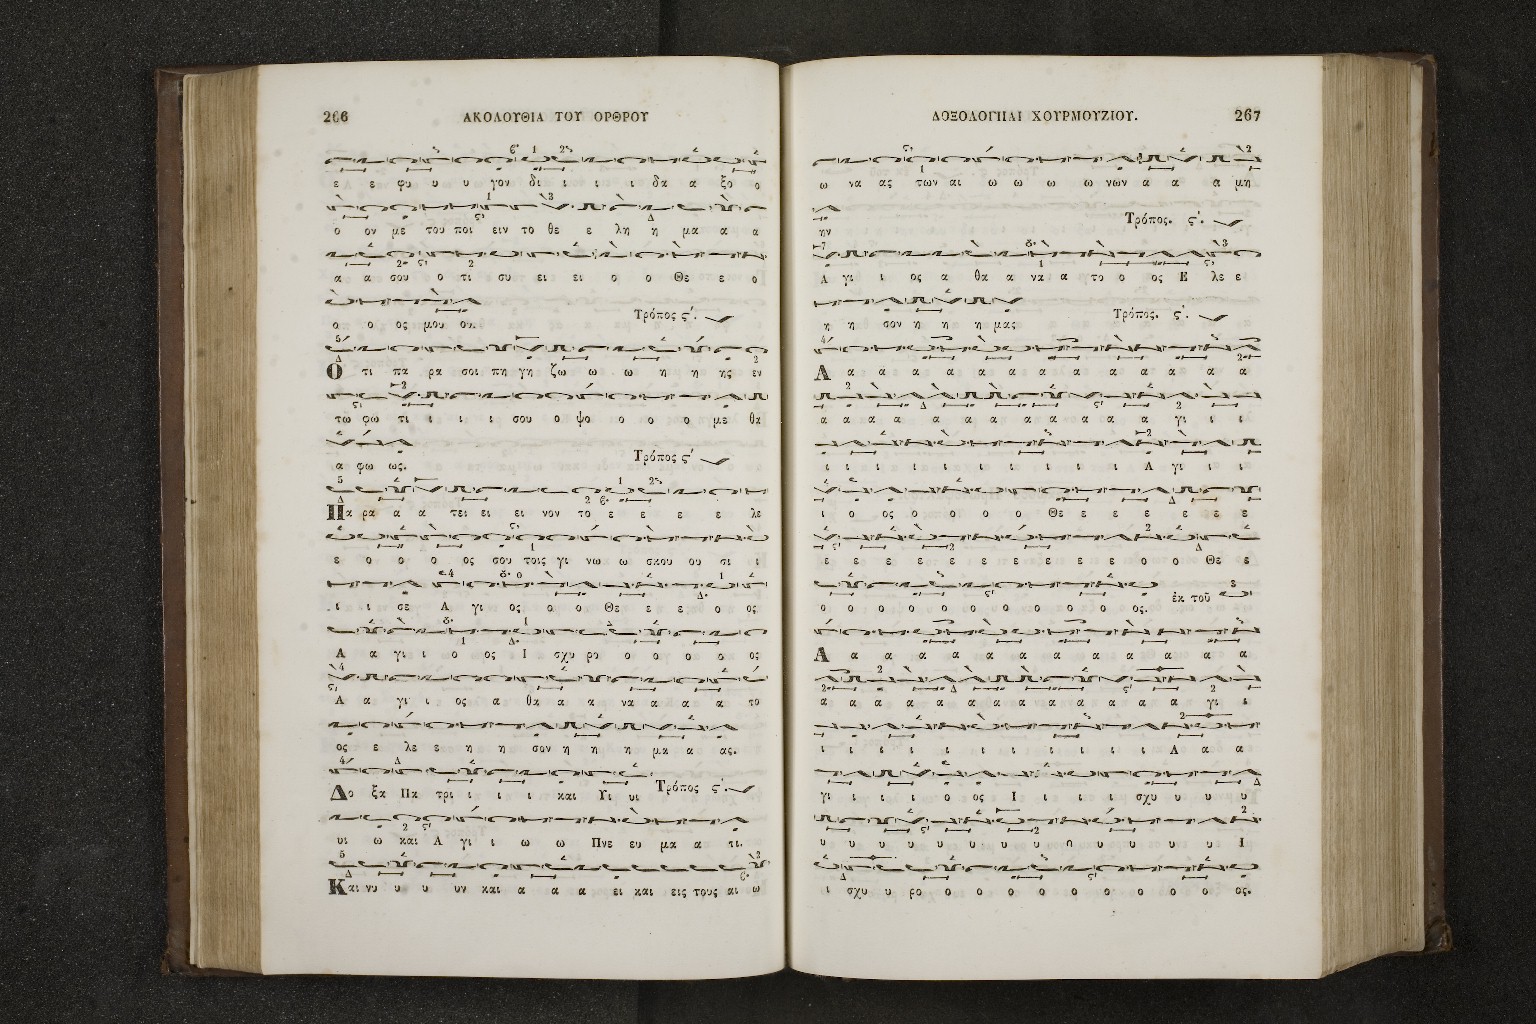 266 ΑΚΟΛΟΥΘΙΑ ΤΟΥ ΟΡΘΡΟΥ
ε ε φυ υ υ γον δι ι ι ι δα α ξο ο
ο ον με του ποι ειν το θε ε λη η μα α α
α α σου ο τι συ ει ει ο ο Θε ε ο
ο ο ος μου ου. Τρόπος ς΄.
Ο τι πα ρα σοι πη γη ζω ω ω η η ης εν
τω φω τι ι ι ι σου ο ψο ο ο ο με θα
α φω ως. Τρόπος ς΄
Πα ρα α α τει ει ει νον το ε ε ε ε λε
ε ο ο ο ος σου τοις γι νω ω σκου ου σι ι
ι ι σε Α γι ος ο ο Θε ε ε ε ο ος
Α α γι ι ο ος Ι σχυ ρο ο ο ο ο ος
Α α γι ι ος α θα α α να α α α το
ος ε λε ε η η σον η η η μα α ας.
Δο ξα Πα τρι ι ι ι και Υι υι Τρόπος ς΄.
υι ω και Α γι ι ω ω Πνε ευ μα α τι.
Και νυ υ υ υν και α α α ει και εις τους αι ω
ΔΟΞΟΛΟΓΙΙΑΙ ΧΟΥΡΜΟΥΖΙΟΥ. 267
ω να ας των αι ω ω ω ω νων α α α μη
ην Τρόπος. ς΄.
Α γι ι ος α θα α να α το ο ος Ε λε ε
η η σον η η η μας Τρόπος. ς΄.
Α α α α α α α α α α α α α α
α α α α α α α α α α α γι ι ι
ι ι ι ι ι ι ι ι ι ι Α γι ι ι
ι ο ος ο ο ο ο Θε ε ε ε ε ε ε
ε ε ε ε ε ε ε ε ε ε ο ο Θε ε
ο ο ο ο ο ο ο ο ο ο ος. ἐκ τοῦ
Α α α α α α α α α α α α α
α α α α α α α α α α α α α γι ι
ι ι ι ι ι ι ι ι ι ι ι Α α α
γι ι ι ι ο ος Ι ι ι ι σχυ υ υ υ
υ υ υ υ υ υ υ υ υ υ υ υ υ Ι
ι σχυ υ ρο ο ο ο ο ο ο ο ο ο ος.